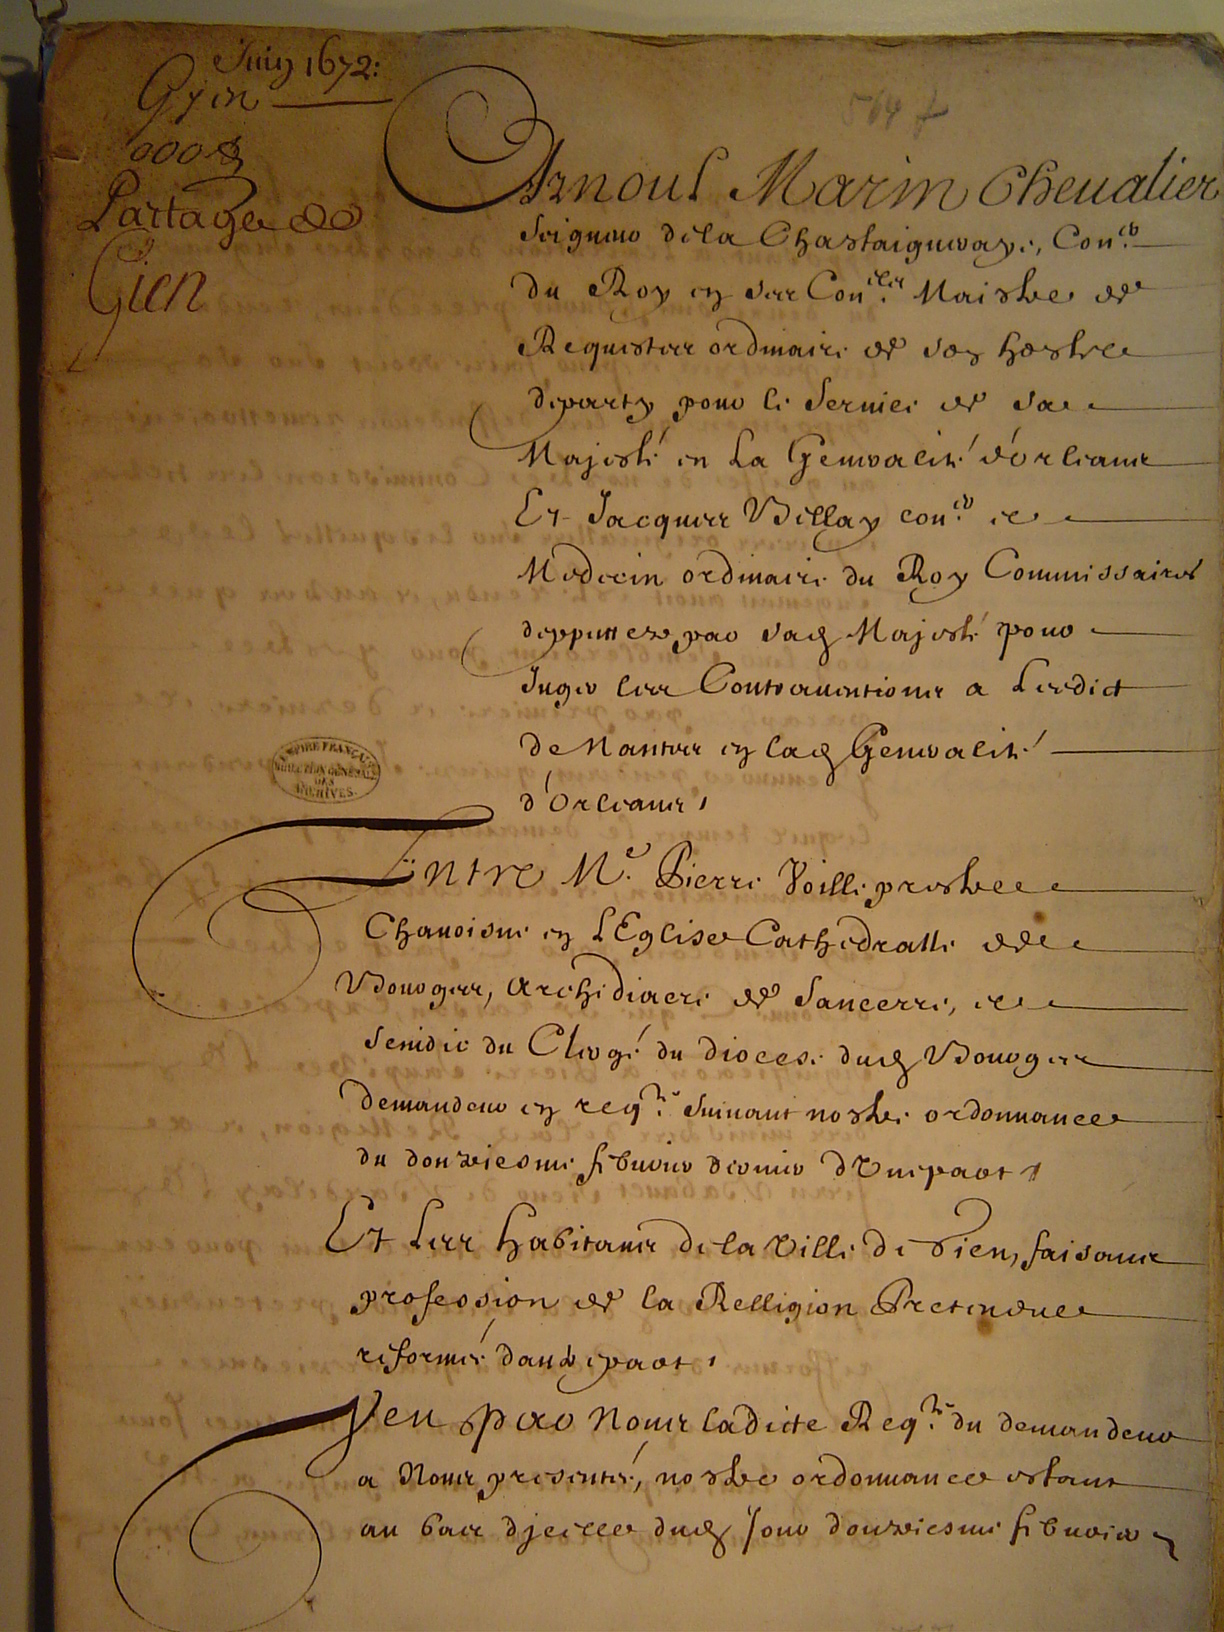 Juin 1672:
Gyen
Partage de
Gien
564
Arnoul Marin Cheualier
Seigneur de la Chastaigneraye, Con.er
du Roy en ses Con.els Maistre des
Requestes ordinaire de son hostel
departy pour le seruice de sa
Majesté en La Generalité d'orleans
Et Jacques Belay con.er et
Medecin ordinaire du Roy Commissaires
depputtez par sad Majesté pour
Juger les Contrauentions a Leedict
de Nantes en lad Generalité
d'Orleans,
EMPIRE FRANÇAIS
DIRECTION GÉNÉRALE
DES
ARCHIVES.
Entre M.e Pierre Voille prestre
Chanoisne en L'Eglise Cathedralle de
Bourges, Archidiacre de Sancerre, et
Sendic du Clergé du diocese dud Bourges
demandeur en req.te Suiuant nostre ordonnance
du douziesme feburier dernier d'Une part,
Et Les habitans de la Ville de Gien, faisans
profession de la Relligion Pretendue
reformée d'autre part,
Veu par Nous ladicte Req.te du demandeur
a Nous presentée, nostre ordonnance estant
au bas d'jcelle dud Jour douziesme feburier